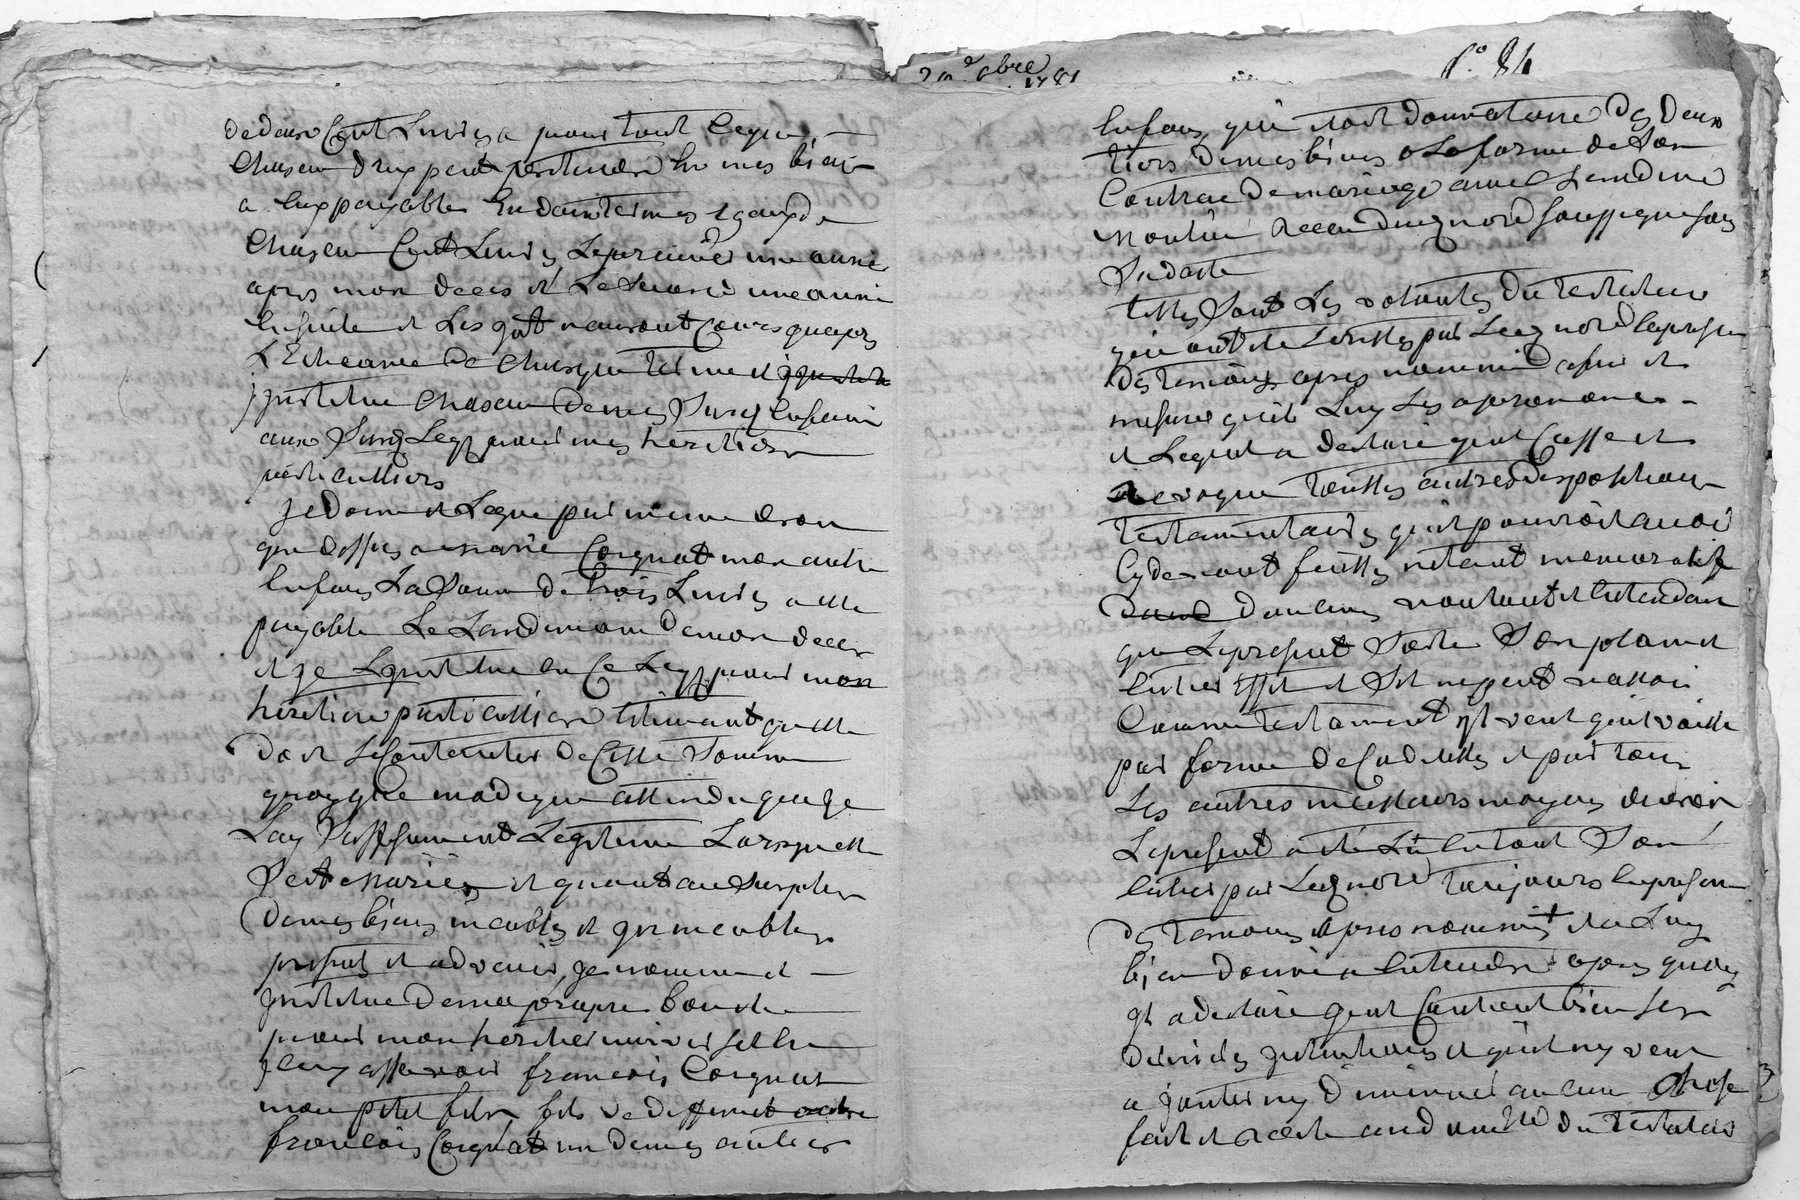 de deux Cent Livres a pour tout legue
Chascun dreu peut pretendre sur mes biens
a lux payable En deux termes egaux de
Chascun Cent Livres Le premier une année
apres mon deces et Le second une année
Ensuite et Les qt nauront Cours quapres
LEcheance de Chasque terme et
jnstitue Chascun de mes Susd Enfans
aux Susd Legs pour mes heritiers
particulliers
Je donne et Legue par mesme droit
que dessus a marie Coignat mon autre
Enfans La Somme de trois Livres a elle
payable Le Landemain de mon deces
et je Linstitue En Ce Legs pour mon
heritiere particulliere Estimant quelle
doit Se Contenter de Cette Somme
quoy que modique attendu que je
Lay Suffisament Legitimé Lorsquelle
Sest mariée et quant au Surplus
de mes biens meubles et jmmeubles
presents et advenir, je nomme et
jnstitue de ma propre bouche
pour mon heritier universel
assavoir françois Coignat
mon petit fils fils de deffunt autre
françois Coignat un de mes autres
20e 8bre 1781
f.° 84
Enfans qui etoit donnataire des deux
tiers de mes biens a La forme de Son
Contrac de mariage avec
moulin Receu dud no.re Soussigné Sous
Sa datte
telles Sont Les volontés du testateur
qui ont été Ecrittes par Led no.re En presence
des temoins apres nommés a fur et
mesure quil Luy Les a prononcé
et Lequel a declaré quil Casse et
Revoque touttes autres dispositions
testamentaires quil pourroit avoir
Cy devant faittes netant memoratif
daucunes voulant et Entendant
que Le present Sorte Son plain et
Entier Effet et Sil ne peut valloir
Comme testament jl veut quil vaille
par forme de Codicille et par tous
Les autres meilleurs moyens de droit
Le present a été Lu En tout Son
Entier par Led no.re toujours En presence
des temoins apres nommés et a Luy
bien donné a Entendre apres quoy
jl a declaré quil Contient bien Ses
dernieres jntentions et quil ny veut
ajouter ny diminuer aucune Chose
fait et recité aud du testateur